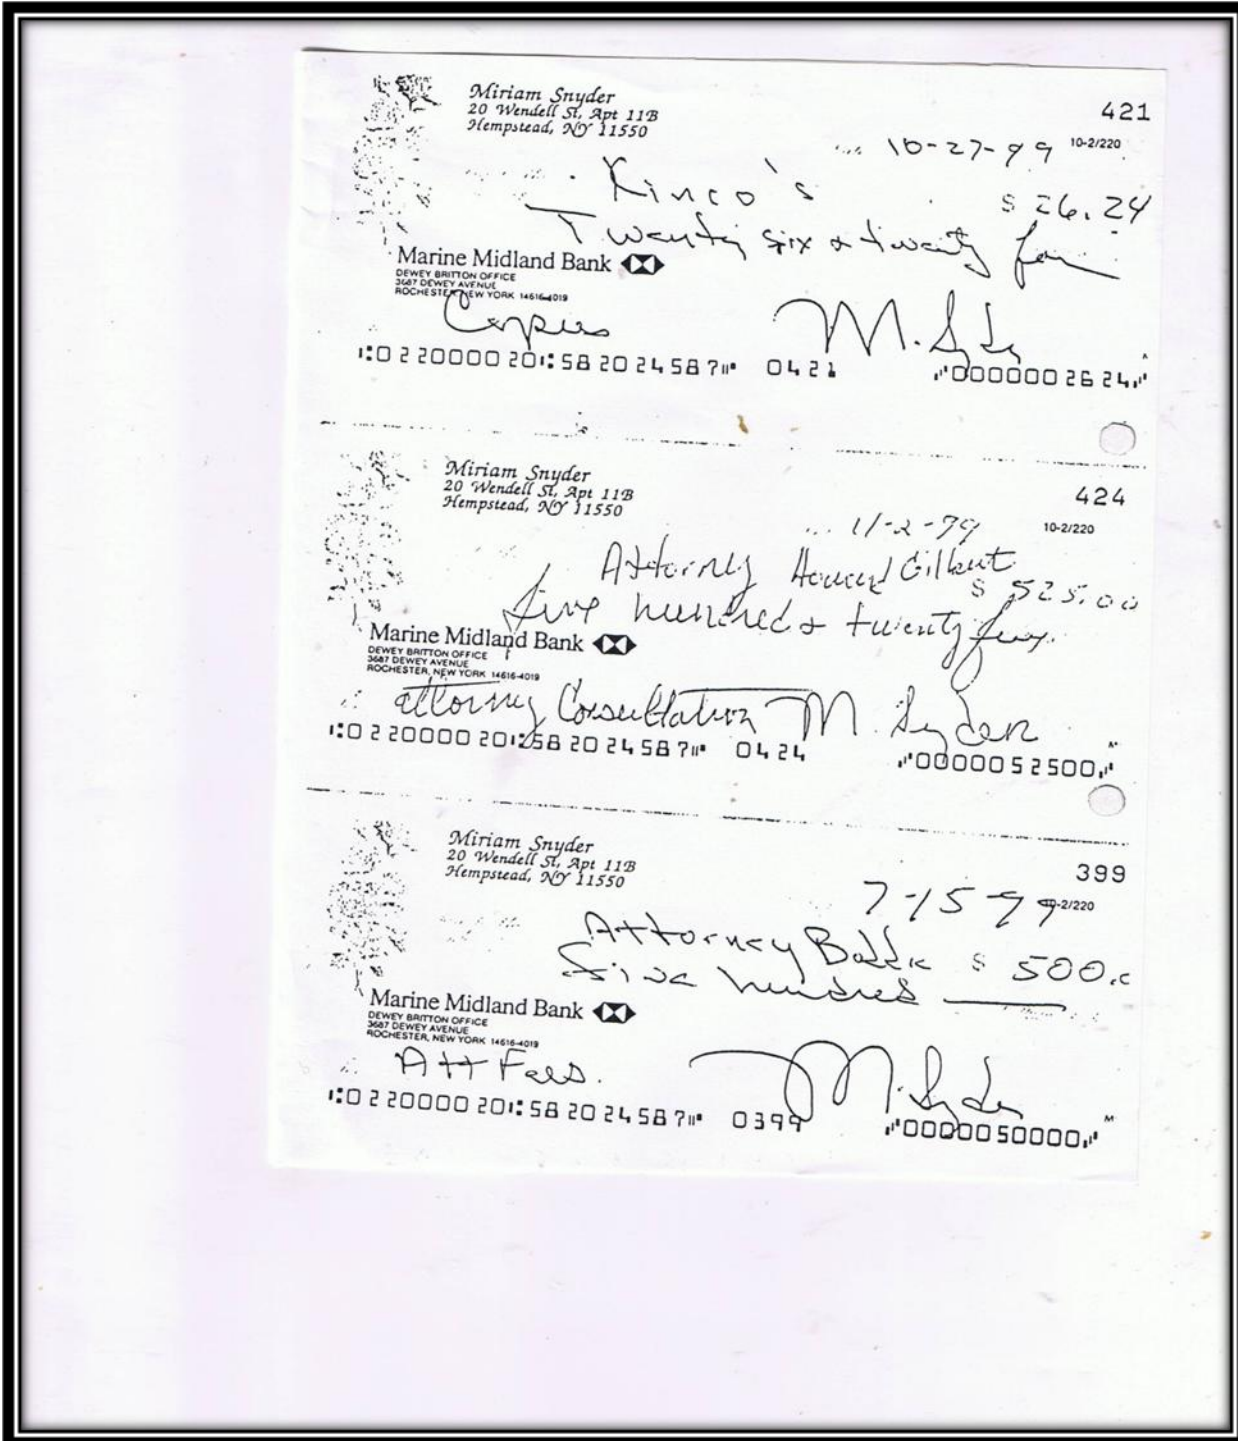 Miriam Snyder
20 Wendell St, Apt 11B
Hempstead, NY 11550
421
10-27-99 10-2/220
Kinco's $ 26.24
Twenty six & twenty four
Marine Midland Bank
DEWEY BRITTON OFFICE
3687 DEWEY AVENUE
ROCHESTER, NEW YORK 14616-4019
Copies M. Snyder
⑆022000020⑆582024587⑈ 0421 ⑈0000002624⑈
Miriam Snyder
20 Wendell St, Apt 11B
Hempstead, NY 11550
424
11-2-99 10-2/220
Attorney Howard Gilbert
$ 525.00
five hundred & twenty five
Marine Midland Bank
DEWEY BRITTON OFFICE
3687 DEWEY AVENUE
ROCHESTER, NEW YORK 14616-4019
attorney Consultation M. Snyder
⑆022000020⑆582024587⑈ 0424 ⑈0000052500⑈
Miriam Snyder
20 Wendell St, Apt 11B
Hempstead, NY 11550
399
7-15-99 10-2/220
Attorney $ 500.
five hundred
Marine Midland Bank
DEWEY BRITTON OFFICE
3687 DEWEY AVENUE
ROCHESTER, NEW YORK 14616-4019
Att Fees. M. Snyder
⑆022000020⑆582024587⑈ 0399 ⑈0000050000⑈